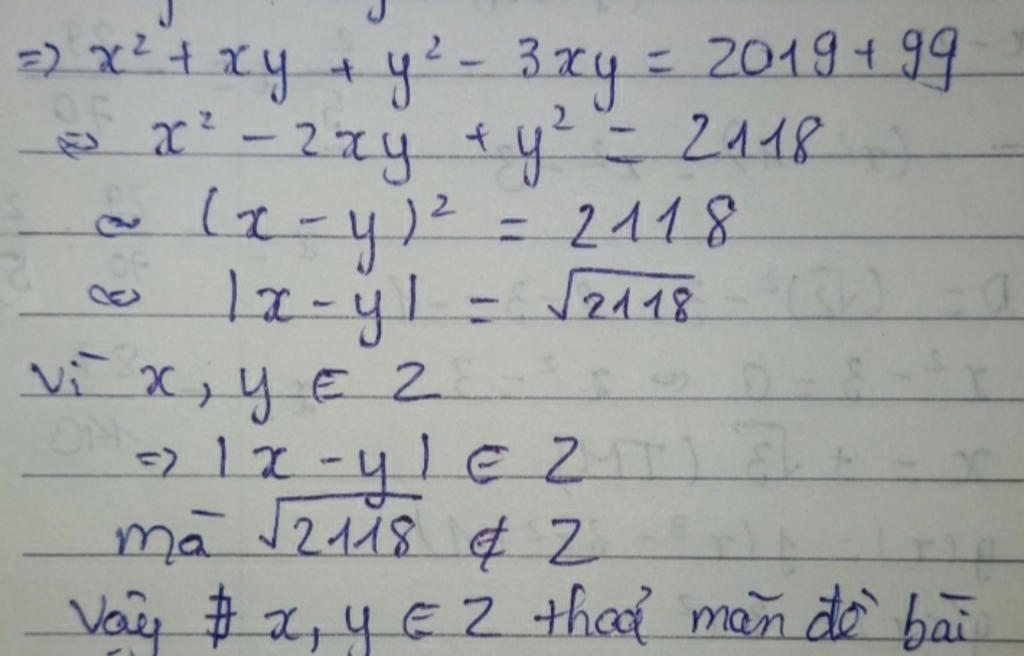 => x² + xy + y² - 3xy = 2019 + 99
<=> x² - 2xy + y² = 2118
<=> (x - y)² = 2118
<=> |x - y| = √2118
Vì x, y ∈ Z
=> |x - y| ∈ Z
mà √2118 ∉ Z
Vậy ∄ x, y ∈ Z thoả mãn đề bài